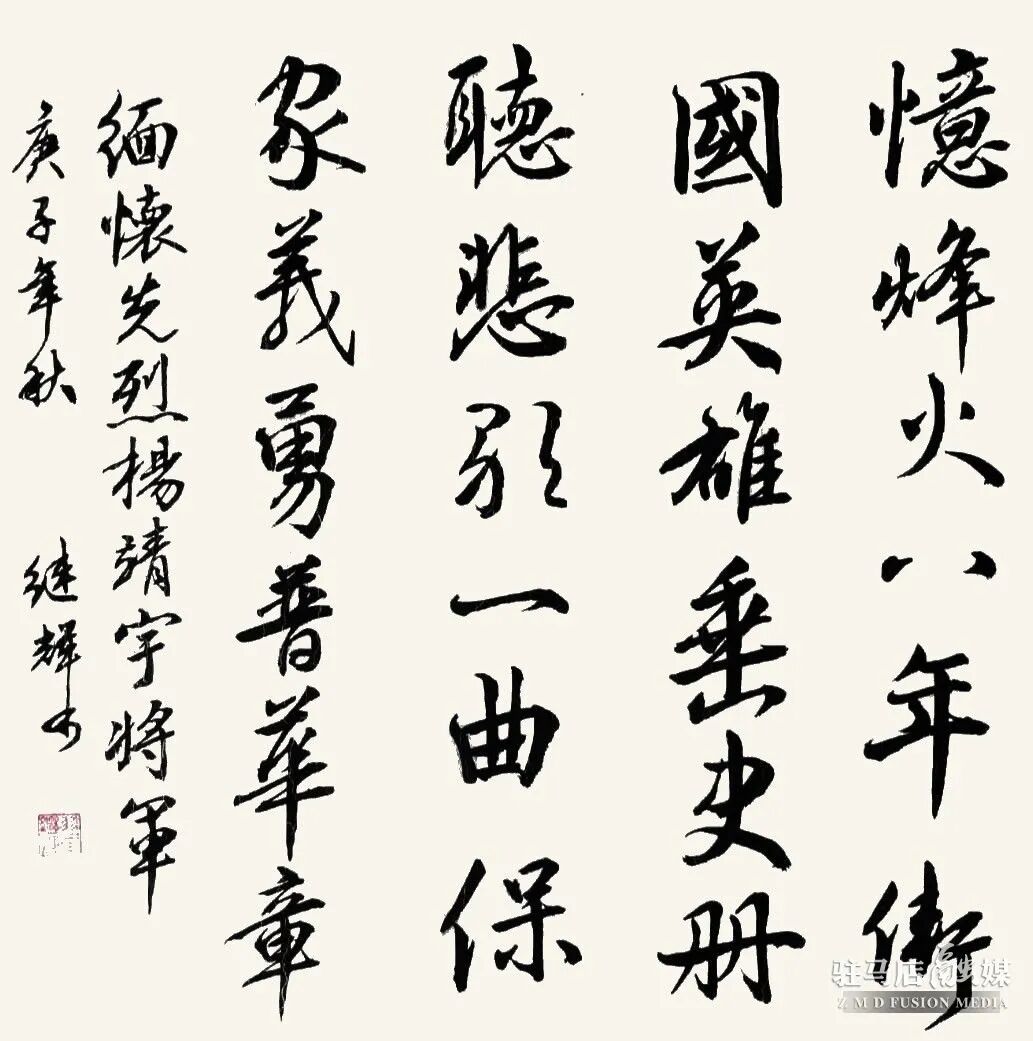 憶烽火八年衛
國英雄垂史册
聽悲歌一曲保
家義勇普華章
緬懷先烈楊靖宇將軍
庚子年秋 继輝书
驻马店融媒
Z M D FUSION MEDIA